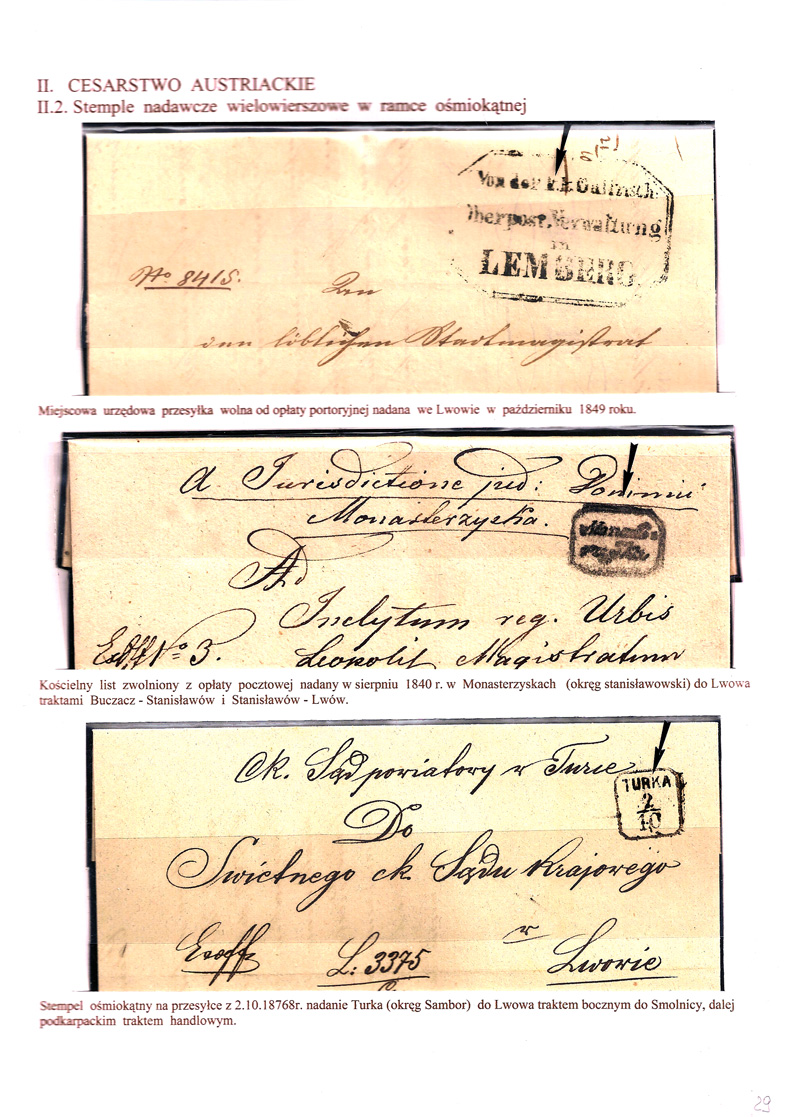 II. CESARSTWO AUSTRIACKIE
II.2. Stemple nadawcze wielowierszowe w ramce ośmiokątnej
Von der k.k. Gallizisch
Oberpost.Verwaltung
in
LEMBERG
No 8415.
An
den löblichen Stadtmagistrat
Miejscowa urzędowa przesyłka wolna od opłaty portoryjnej nadana we Lwowie w październiku 1849 roku.
A Jurisdictione jud: Dominii
Monasterzyska.
Monaste-
rzyska
Ad
Inclytum reg. Urbis
Exoff No 3. Leopolit Magistratum
Kościelny list zwolniony z opłaty pocztowej nadany w sierpniu 1840 r. w Monasterzyskach (okręg stanisławowski) do Lwowa
traktami Buczacz - Stanisławów i Stanisławów - Lwów.
Ck. Sąd powiatowy w Turce
TURKA
2
10
Do
Swietnego ck Sądu Krajowego
w
Exoff L: 3375 Lwowie
Stempel ośmiokątny na przesyłce z 2.10.18768r. nadanie Turka (okręg Sambor) do Lwowa traktem bocznym do Smolnicy, dalej
podkarpackim traktem handlowym.
29